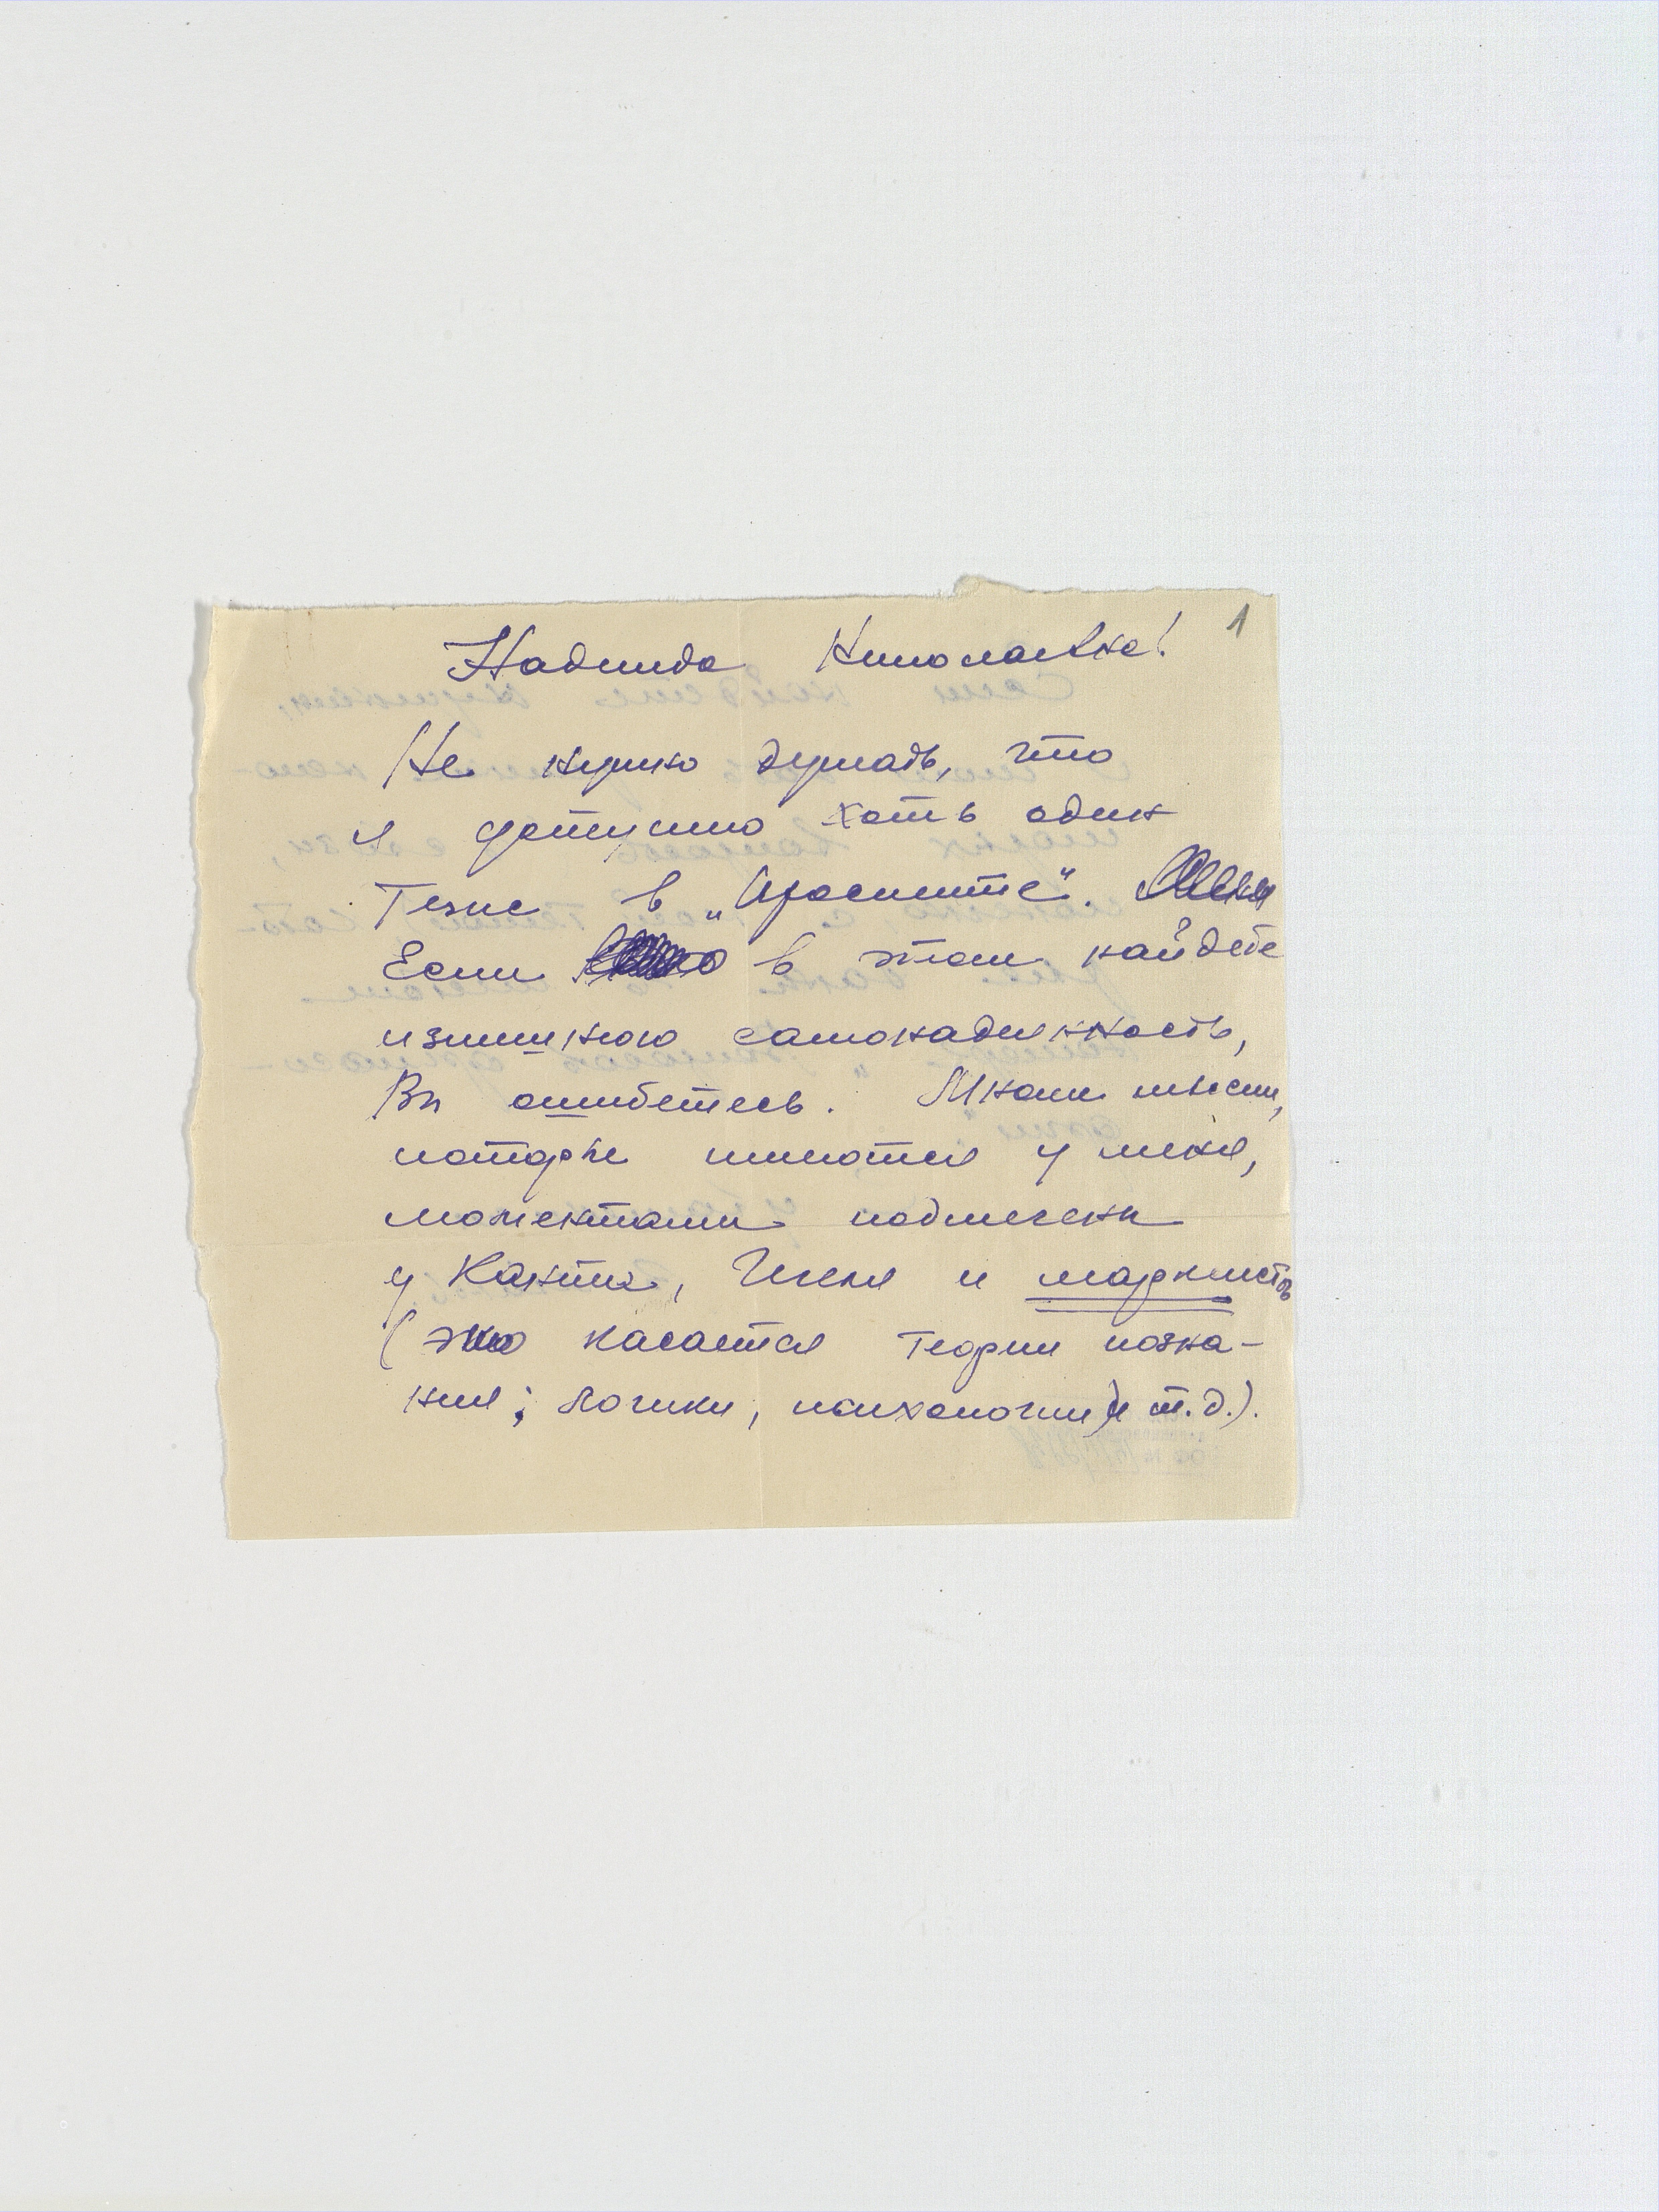 1
Надежда Николаевна!
Не нужно думать, что
я допускаю хоть один
тезис в „просите".
Если в этом найдете
излишнюю самонадеянность,
Вы ошибетесь. Многие мысли,
которые имеются у меня,
моментами подмечены
у Канта, Гегеля и марксистов
(это касается теории позна-
ния; логики, психологии) и т.д.).